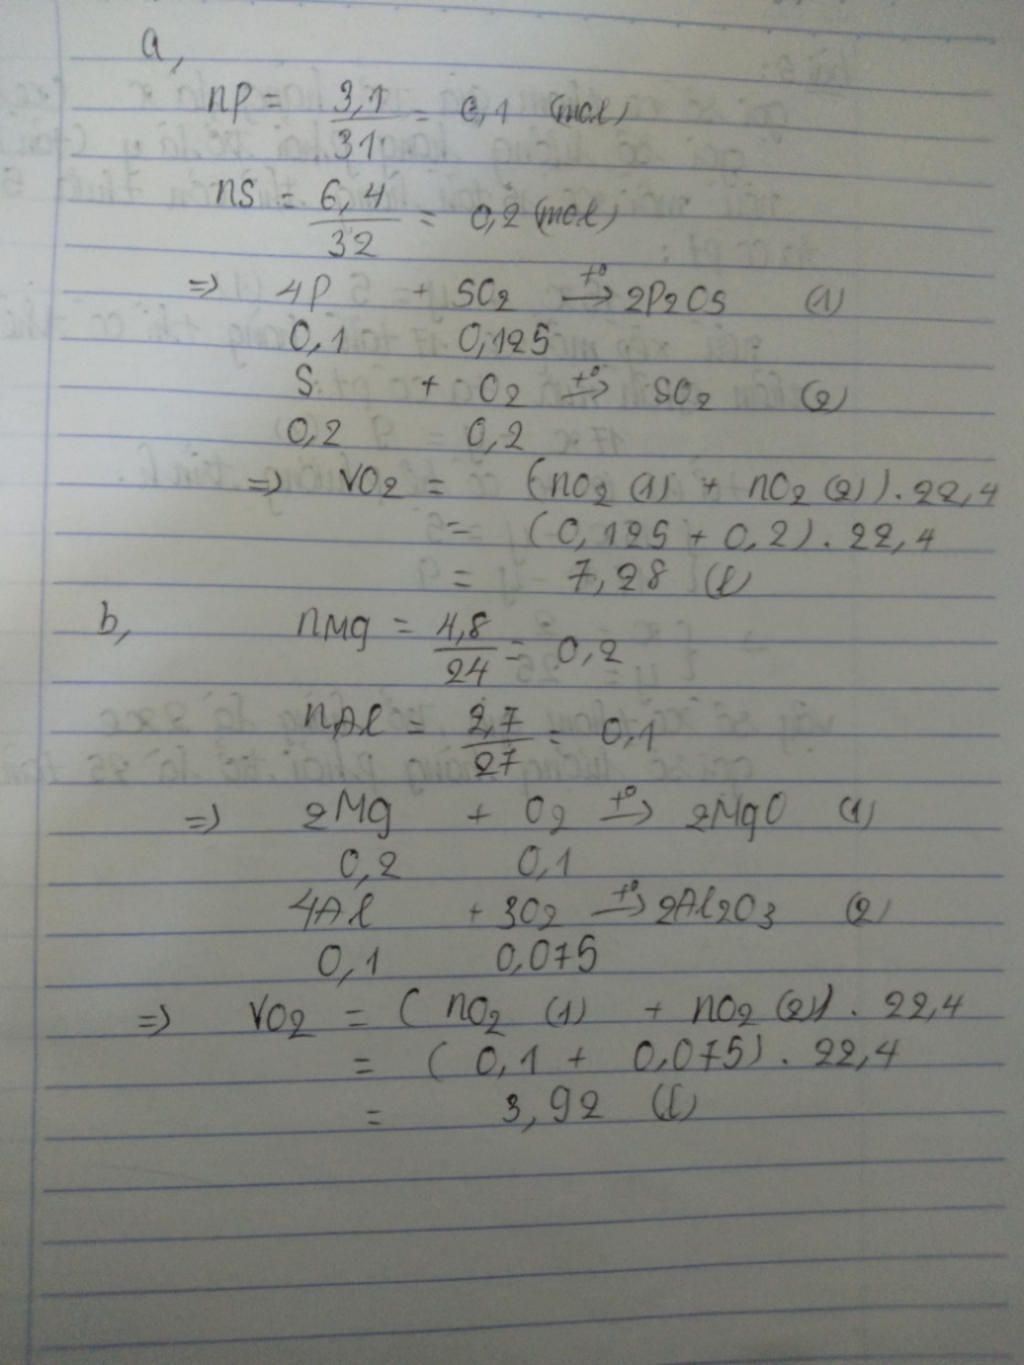 a,
nP = 3,1/31 = 0,1 (mol)
nS = 6,4/32 = 0,2 (mol)
=> 4P + 5O2 t°→ 2P2O5 (1)
0,1 0,125
S + O2 t°→ SO2 (2)
0,2 0,2
=> VO2 = (nO2 (1) + nO2 (2)) . 22,4
= (0,125 + 0,2) . 22,4
= 7,28 (l)
b, nMg = 4,8/24 = 0,2
nAl = 2,7/27 = 0,1
=> 2Mg + O2 t°→ 2MgO (1)
0,2 0,1
4Al + 3O2 t°→ 2Al2O3 (2)
0,1 0,075
=> VO2 = (nO2 (1) + nO2 (2)) . 22,4
= (0,1 + 0,075) . 22,4
= 3,92 (l)